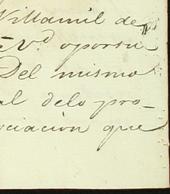 Villamil de
Vd oportu
Del mismo
al delo pro-
ciacion que